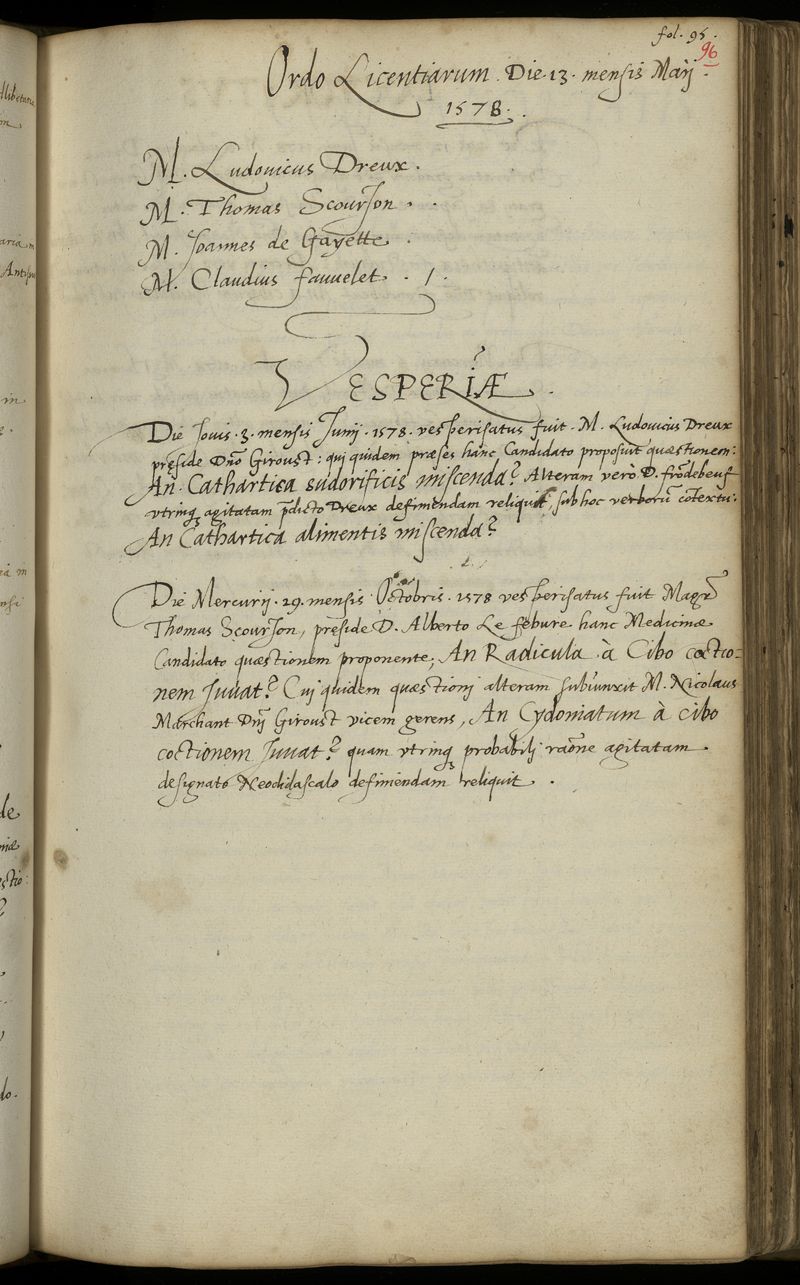 fol. 95.
96
Ordo Licentiarum. Die. 13. mensis Maij.
1578.
M. Ludouicus Dreux.
M. Thomas Scourjon.
M. Joannes de Gayette.
M. Claudius fauuelet. 1.
VESPERIÆ.
Die Jouis. 3. mensis Junij. 1578. vesperisatus fuit. M. Ludouicus Dreux
pręside Dño Giroust: quj quidem præses hanc Candidato proposuit quæstionem:
An Cathartica sudorificis miscenda? Alteram verò D. frõdebeuf
vtrinq; agitatam p̃dicto Dreux definiendam reliquit, sub hoc verborũ cõtextu.
An Cathartica alimentis miscenda?
Die Mercurij. 29. mensis Octobris. 1578 vesperisatus fuit Magr̃
Thomas Scourjon, pręside D. Alberto Le febure hanc Medicinæ
Candidato quæstionem proponente, An Radicula à Cibo coctio-
nem Juuat? Cuj quidem quæstionj alteram subiunxit M. Nicolaus
Marchant Dnj Giroust vicem gerens, An Cydoniatum à cibo
coctionem Juuat? quam vtrinq; probabilj raõne agitatam
designato Neodidascalo definiendam reliquit.